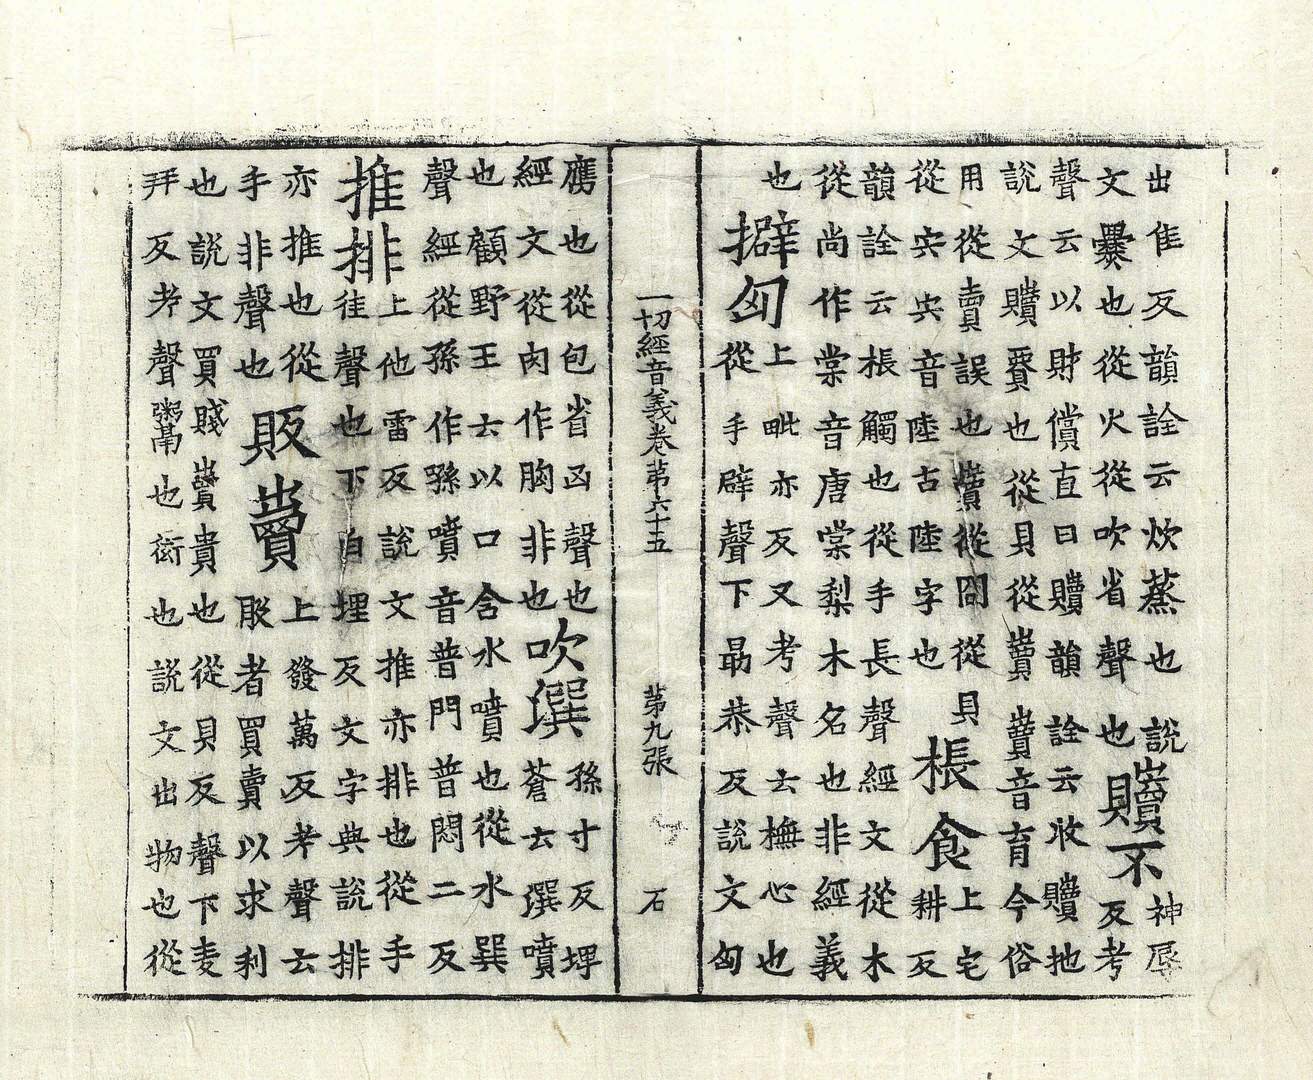 出隹反韻詮云炊蒸也說
文爨也從火從吹省聲也
贖不
神辱
反考
聲云以財償直曰贖韻詮云收贖地
說文贖貿也從貝從𧶠𧶠音育今俗
用從賣誤也𧶠從囧從貝
從坴坴音陸古陸字也
棖食
上宅
耕反
韻詮云棖觸也從手長聲經文從木
從尚作棠音唐棠梨木名也非經義
也
擗匈
上毗亦反又考聲云撫心也
從手辟聲下勗恭反說文匈
一切經音義卷第六十五 第九張 石
膺也從包省凶聲也
經文從肉作胸非也
吹潠
孫寸反埤
蒼云潠噴
也顧野王云以口含水噴也從水巽
聲經從孫作噴音普門普悶二反
推排
上他雷反說文推亦排也從手
隹聲也下白埋反文字典說排
亦推也從
手非聲也
販賣
上發萬反考聲云
販者買賣以求利
也說文買賤賣貴也從貝反聲下麦
拜反考聲鬻也衒也說文出物也從